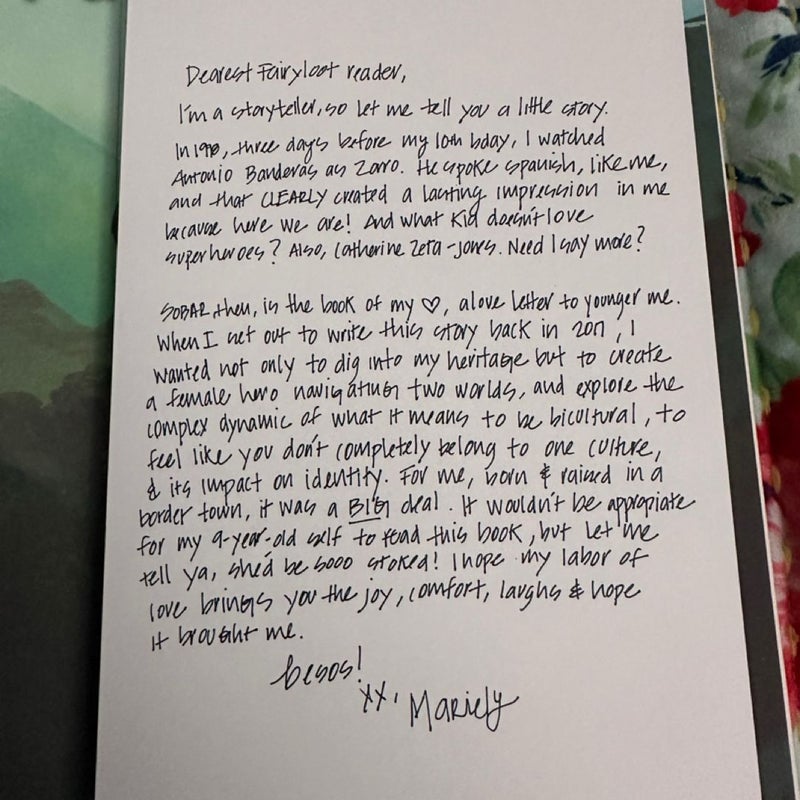 Dearest Fairyloot reader,
I'm a storyteller, so let me tell you a little story.
In 1998, three days before my 10th bday, I watched
Antonio Banderas as Zorro. He spoke spanish, like me,
and that CLEARLY created a lasting impression in me
because here we are! And what kid doesn't love
superheroes? Also, Catherine Zeta-Jones. Need I say more?
SOBAR, then, is the book of my ♡, a love letter to younger me.
When I set out to write this story back in 2017, I
wanted not only to dig into my heritage but to create
a female hero navigating two worlds, and explore the
complex dynamic of what it means to be bicultural, to
feel like you don't completely belong to one culture,
& its impact on identity. For me, born & raised in a
border town, it was a BIG deal. It wouldn't be appropiate
for my 9-year-old self to read this book, but let me
tell ya, she'd be sooo stoked! I hope my labor of
love brings you the joy, comfort, laughs & hope
it brought me.
besos!
xx,
Mariely